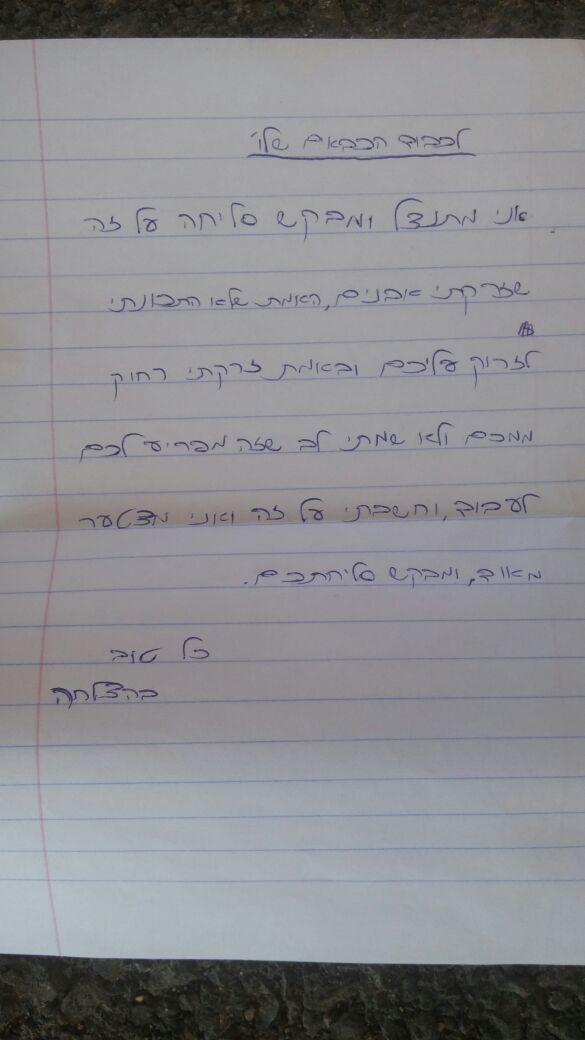 לכבוד הכבאים שלי
אני מתנצל ומבקש סליחה על זה
שזרקתי אבנים, האמת שלא התכוונתי
לזרוק עליכם ובאמת זרקתי רחוק
ממכם ולא שמתי לב שזה מפריע לכם
לעבוד, וחשבתי על זה ואני מצטער
מאוד, ומבקש סליחתכם.
כל טוב
בהצלחה